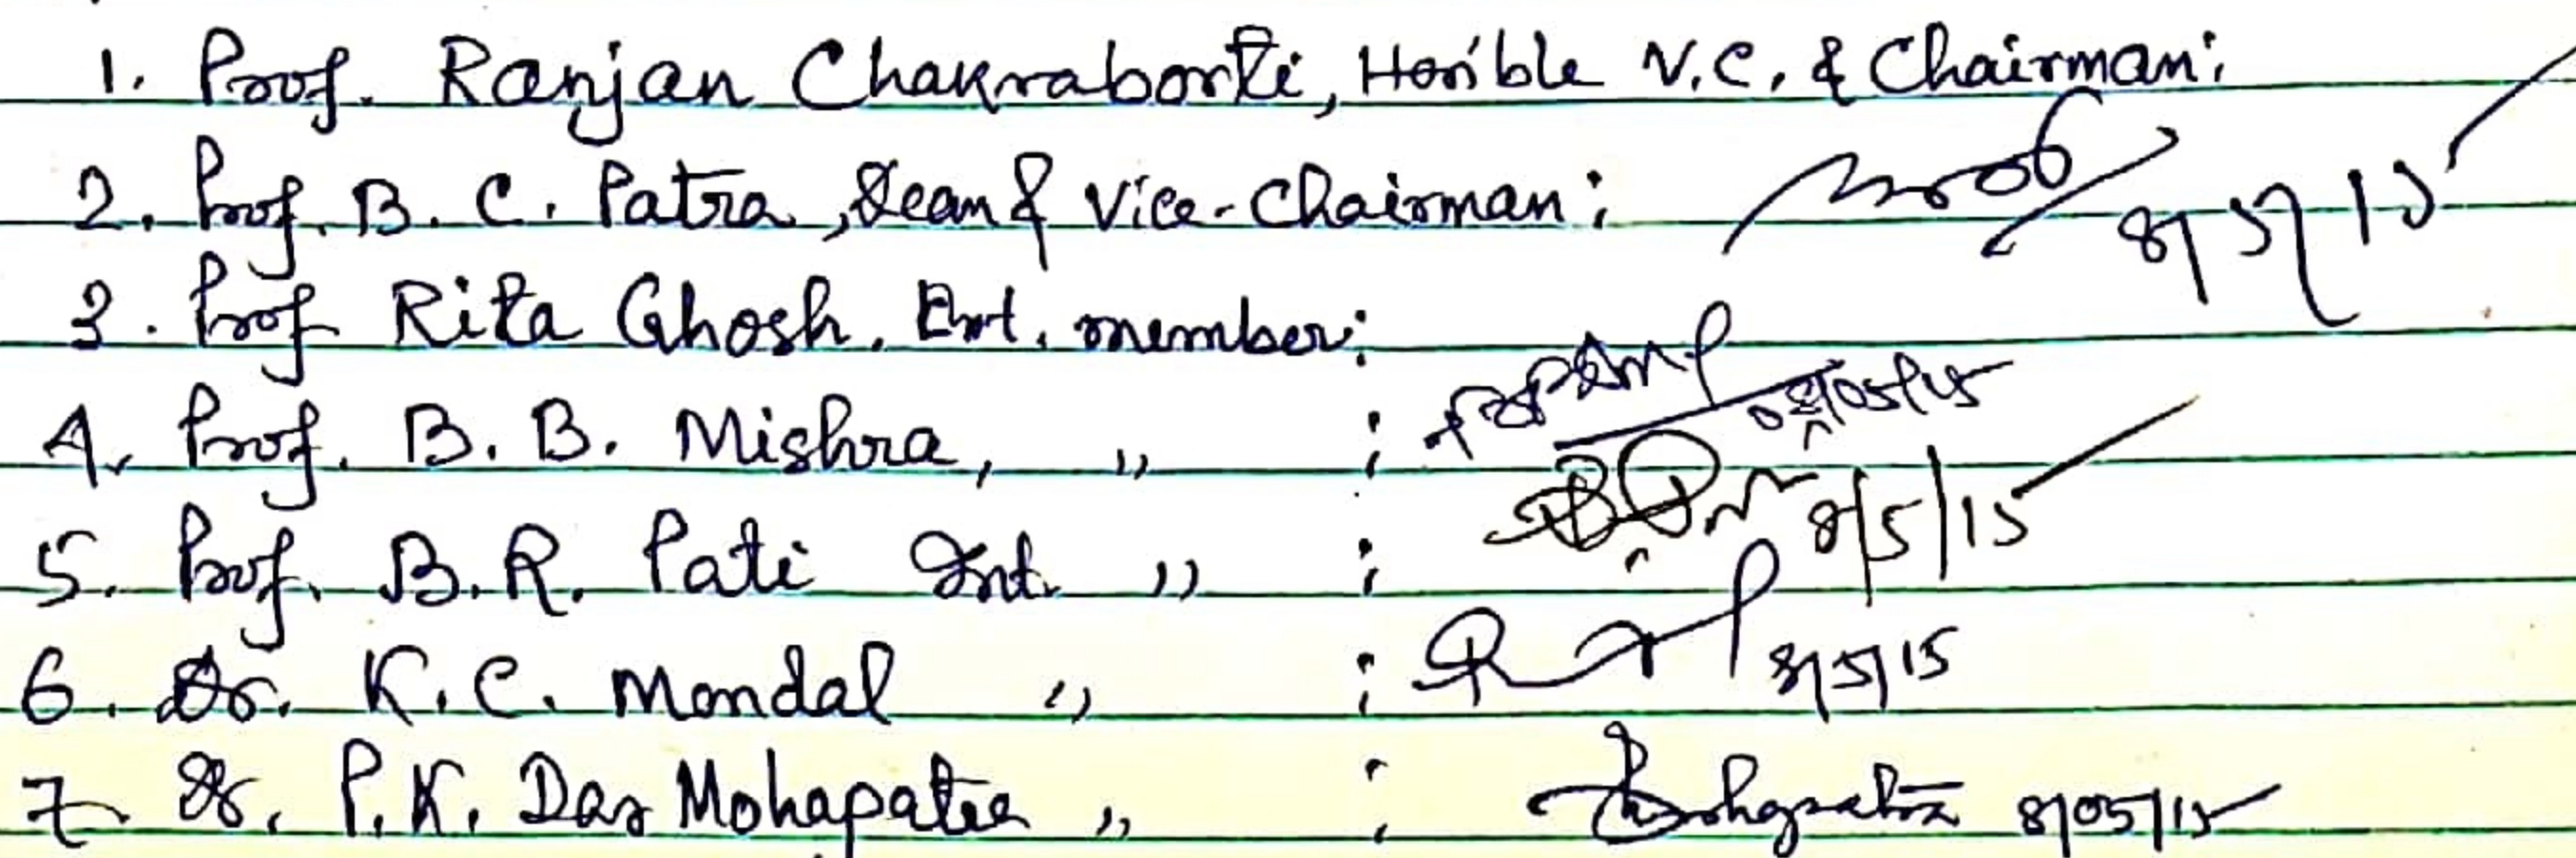 1. Prof. Ranjan Chakraborti, Hon'ble V.C. & Chairman:
2. Prof. B. C. Patra, Dean & Vice-Chairman: 8/5/15
3. Prof Rita Ghosh. Ext. member:
4. Prof. B. B. Mishra, " : 08/05/15
5. Prof. B.R. Pati Int. " : 8/5/15
6. Dr. K.C. Mondal " : 8/5/15
7. Dr. P.K. Das Mohapatra " : 8/05/15